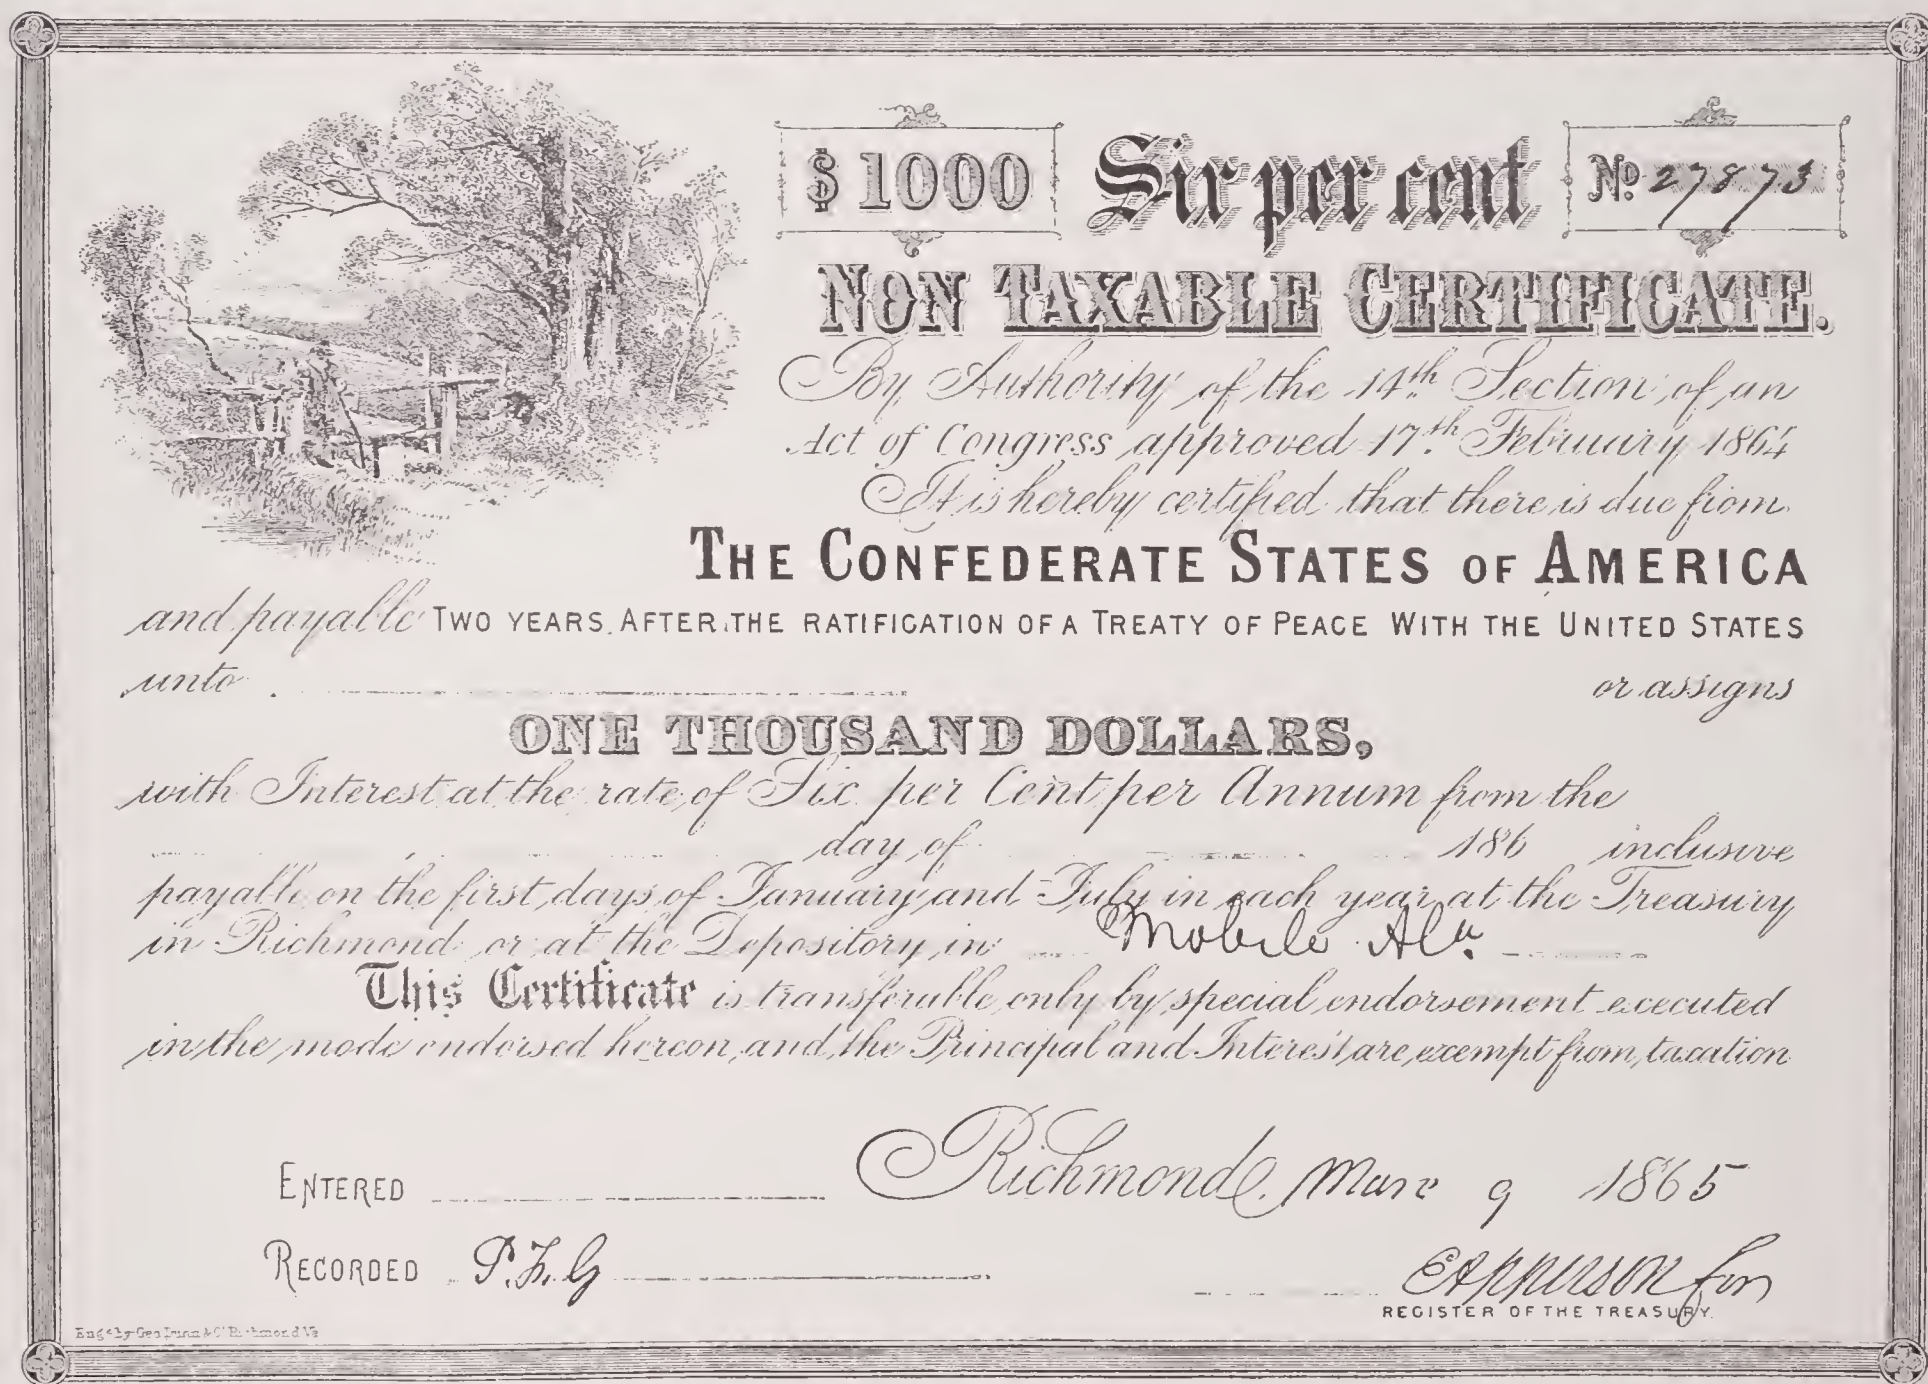 $ 1000 Six per cent No. 27873
NON TAXABLE CERTIFICATE.
By Authority of the 14th Section of an
Act of Congress approved 17th February 1864
It is hereby certified that there is due from
THE CONFEDERATE STATES OF AMERICA
and payable TWO YEARS AFTER THE RATIFICATION OF A TREATY OF PEACE WITH THE UNITED STATES
unto or assigns
ONE THOUSAND DOLLARS,
with Interest at the rate of Six per Cent per Annum from the
day of 186 inclusive
payable on the first days of January and July in each year at the Treasury
in Richmond or at the Depository in Mobile Ala.
This Certificate is transferable only by special endorsement executed
in the mode endorsed hereon, and the Principal and Interest are exempt from taxation
ENTERED Richmond, Mar 9 1865
RECORDED P.F.G
E Apperson for
REGISTER OF THE TREASURY.
Engd by Geo Dunn & Co Richmond Va